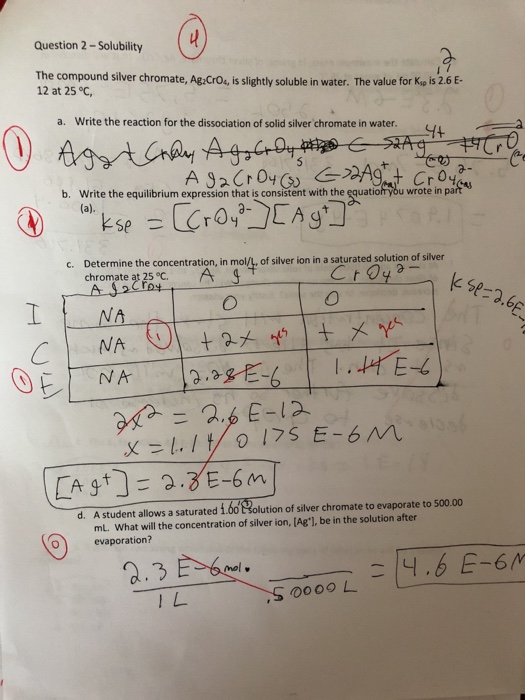 Question 2 – Solubility
4
2
The compound silver chromate, Ag₂CrO₄, is slightly soluble in water. The value for Ksp is 2.6 E-
12 at 25 °C,
a. Write the reaction for the dissociation of solid silver chromate in water.
1
Ag2CrO4(s) ⇌ 2Ag⁺(aq) + CrO4²⁻(aq)
b. Write the equilibrium expression that is consistent with the equation you wrote in part
(a).
1
Ksp = [CrO4²⁻][Ag⁺]²
c. Determine the concentration, in mol/L, of silver ion in a saturated solution of silver
chromate at 25 °C.
Ag⁺ CrO4²⁻
Ag2CrO4
Ksp=2.6E-
I NA 0 0
C NA 1 +2x yes + x yes
1 E NA 2.28 E-6 1.14 E-6
2x² = 2.6 E-12
x = 1.140175 E-6 M
[Ag⁺] = 2.3 E-6 M
d. A student allows a saturated 1.00 L solution of silver chromate to evaporate to 500.00
mL. What will the concentration of silver ion, [Ag⁺], be in the solution after
evaporation?
0
2.3 E-6 mol
1 L
.50000 L
= 4.6 E-6 M